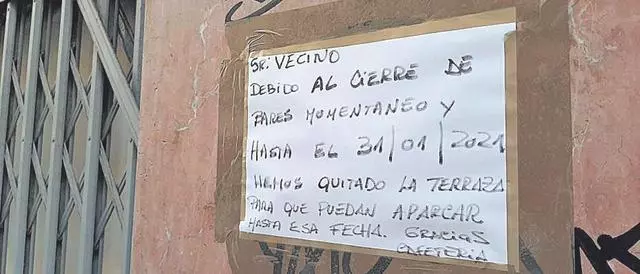 SR: VECINO
DEBIDO AL CIERRE DE
BARES MOMENTANEO Y
HASTA EL 31/01/2021
HEMOS QUITADO LA TERRAZA
PARA QUE PUEDAN APARCAR
HASTA ESA FECHA. GRACIAS
CAFETERIA